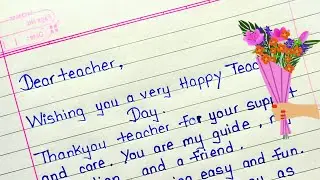 Dear teacher,
Wishing you a very Happy Teac
Day.
Thankyou teacher for your support
and care. You are my guide, my
and a friend.
easy and fun.
you as